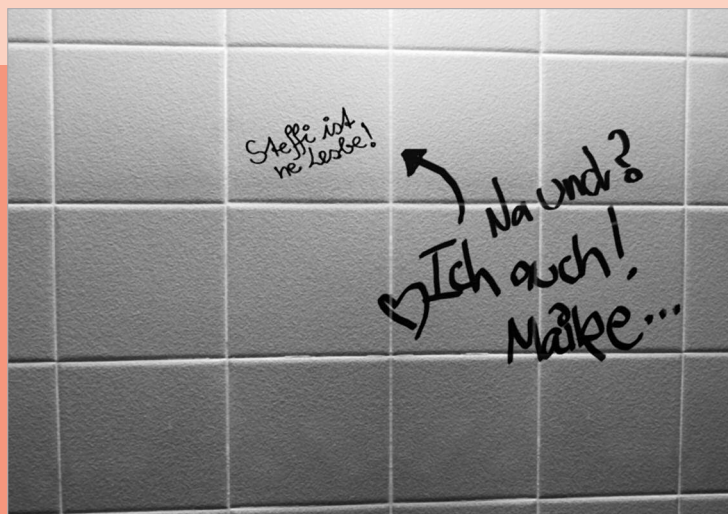 Steffi ist
ne Lesbe!
Na und?
Ich auch!
Maike...